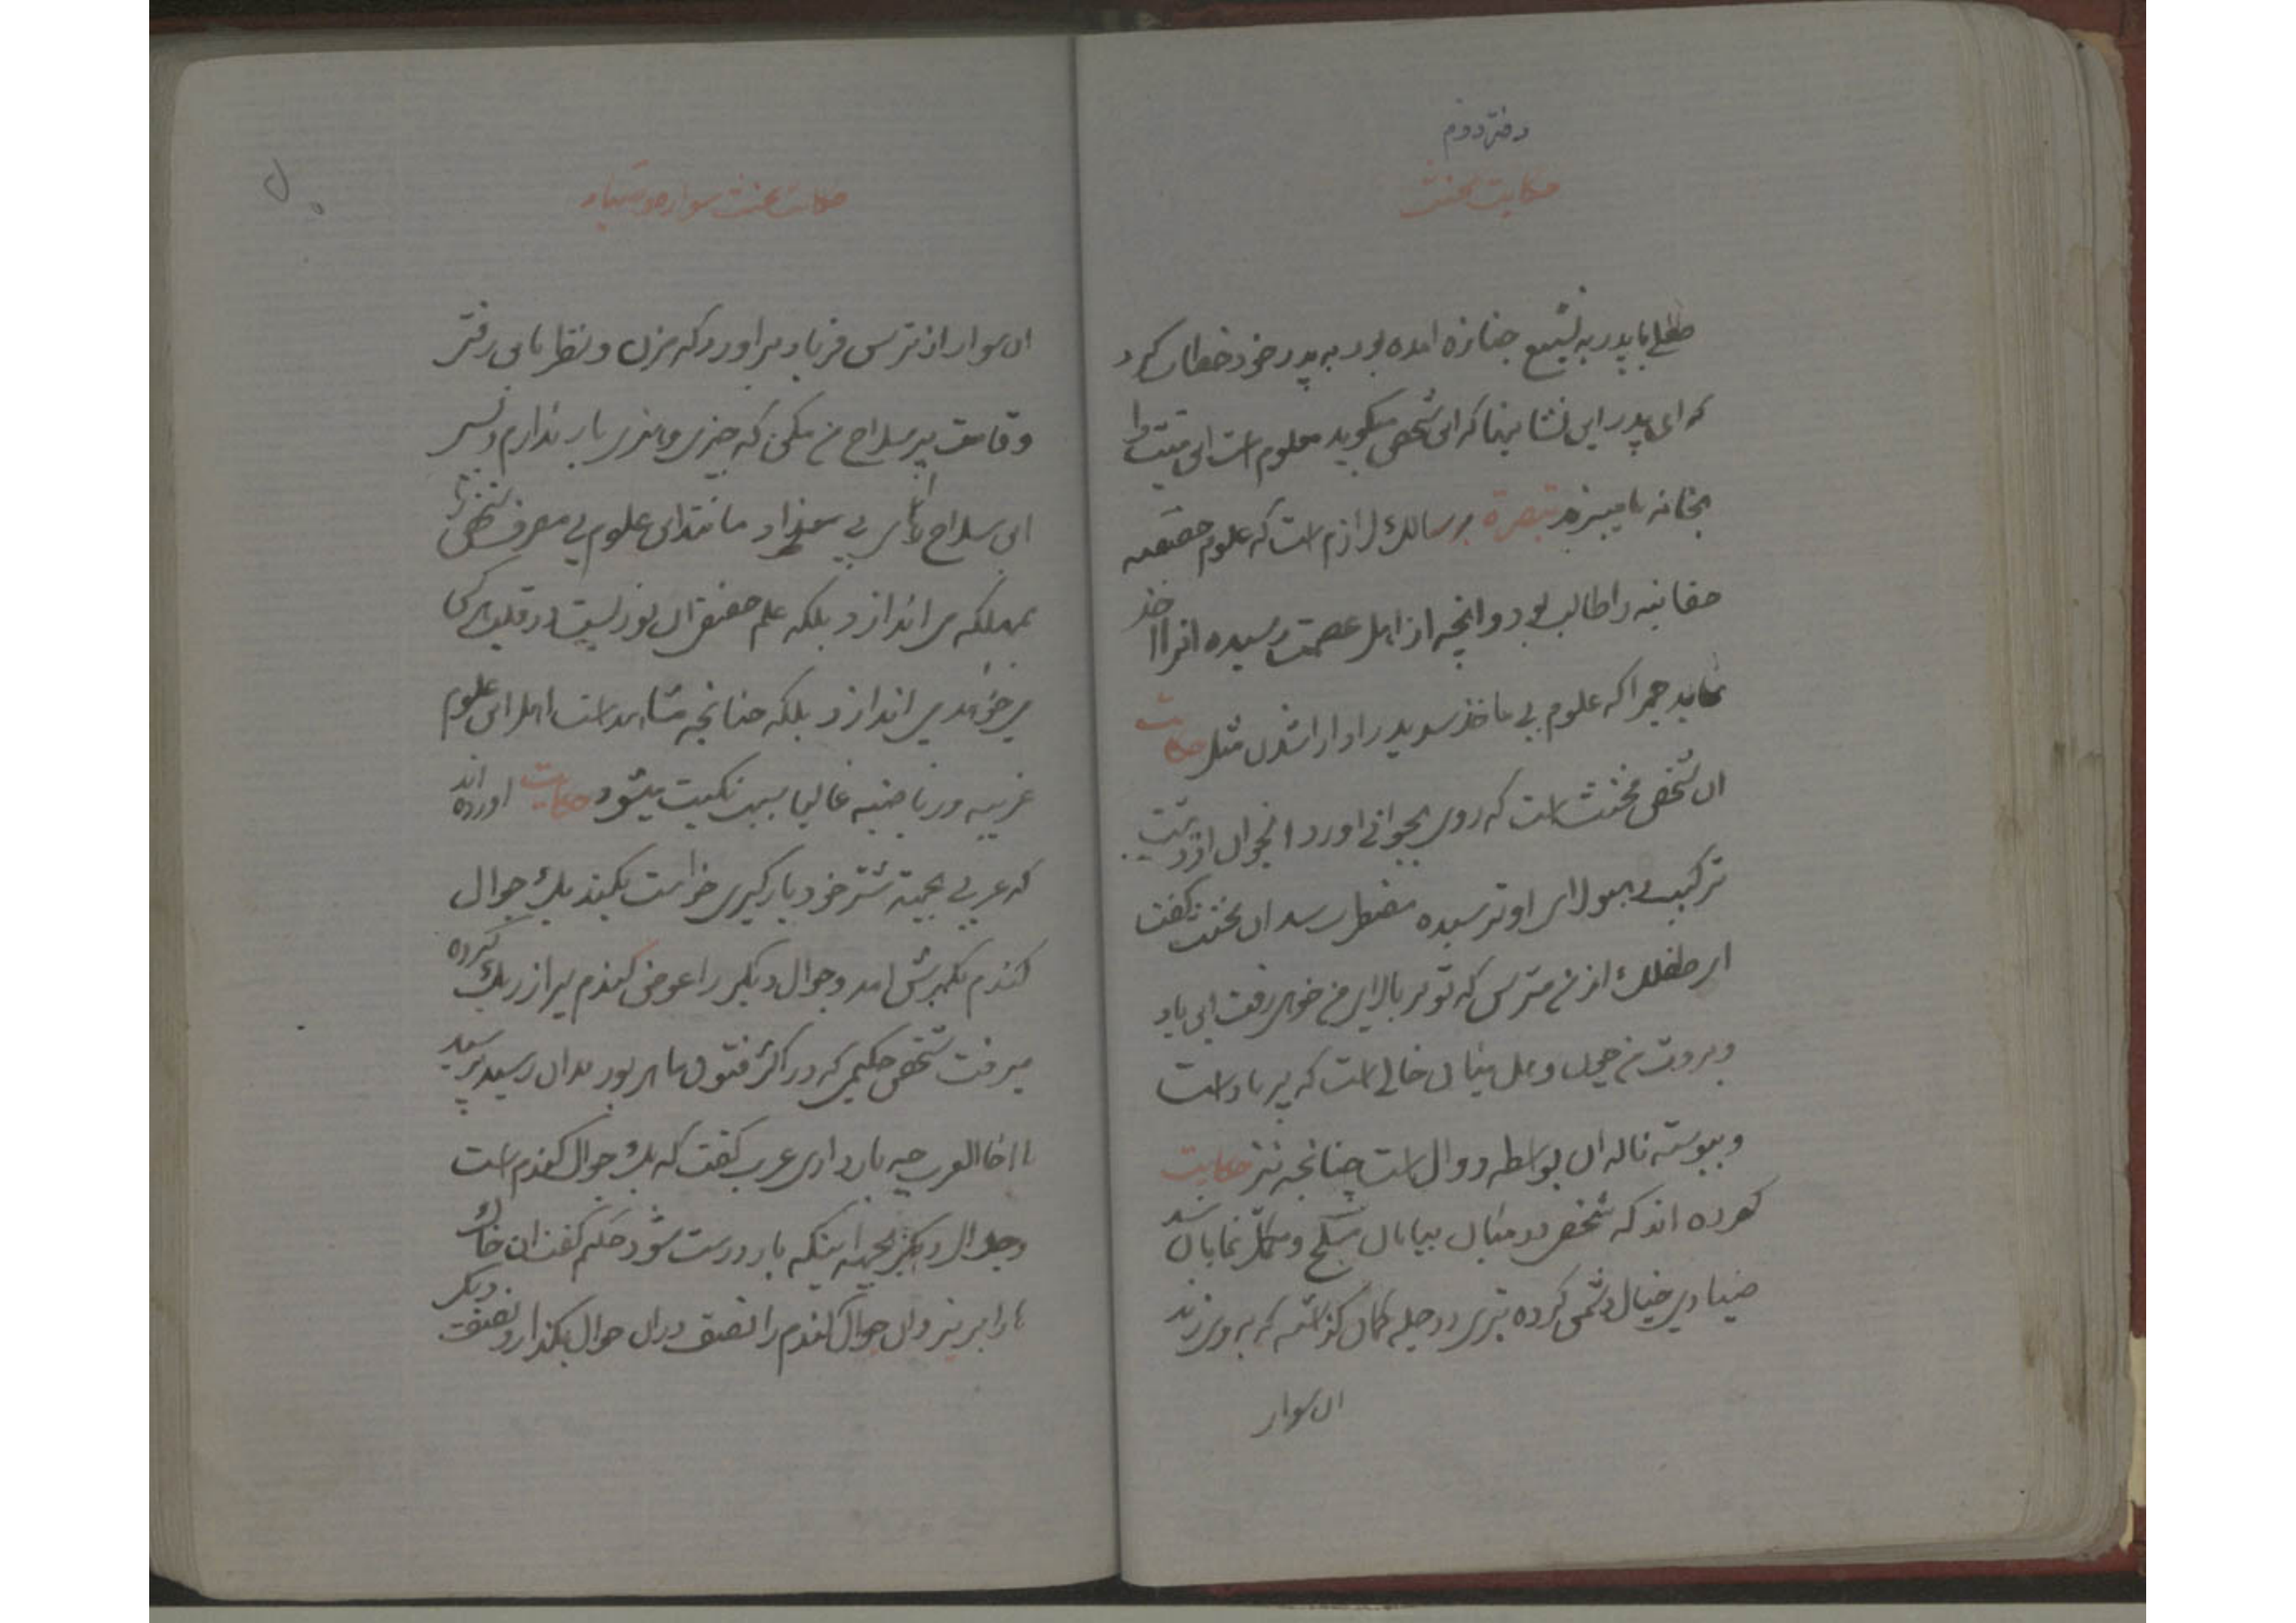 دفتر دوم
حکایت مخنث
طفلی با پدر به تشییع جنازه امده بود به پدر خود خطاب کرد
که ای پدر این نشانیها که این شخص میگوید معلوم است این میت را
بخانه ما میبرند تبصرة بر سالك لازم است که علوم حقیقیه
حقانیه را طالب بود و انچه از اهل عصمت رسیده انرا اخذ
نماید چرا که علوم بی ماخذ دارا شدن مثل حکایت
ان شخص مخنث است که روی بجوانی اورد انجوان از زشت
ترکیب و هیولای او ترسیده مضطر شد ان مخنث گفت
ای طفلك از من مترس که تو بر بالای من خواهی رفت این باد
و بروت من چون خالی است که پر باد است
و پیوسته ناله ان بواسطه دوال است چنانچه نیز حکایت
کرده اند که شخصی در میان بیابان مسلح و مکمل نمایان شد
صیادی خیال دشمنی کرده تیری در چله کمان گذاشته که به وی زند
ان سوار
حکایت سوار و صیاد
ان سوار از ترس فریاد براورد که مزن و نظر باین
و قامت پر سلاح من مکن که چیزی در بار ندارم و بس
این سلاح بی مانند این علوم بی معرفت
بمهلکه می اندازد بلکه علم حقیقی ان نوریست در قلب هر کی
می خواهد می اندازد بلکه چنانچه مشاهد است اهل این علوم
غریبه و ریاضیه غالبا نکبت میشود حکایت اورده اند
که عربی بجهة شتر خود بارگیری خواست بکند یك جوال
گندم یکبرش امد و جوال دیگر را عوض گندم پر از ریگ کرده
میرفت شخص حکیمی که در اکثر فنون ماهر بود بدان رسید پرسید
یا اخا العرب چه بار داری عرب گفت که یك جوال گندم است
و جوال دیگر بجهة اینکه بار درست شود حکیم گفت ان خاك
را بریز و ان جوال گندم را نصف در ان جوال بگذار و نصف دیگر